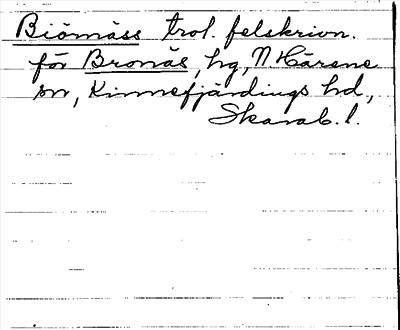 Biömäss trol. felskrivn.
för Bronäs, hg, N Härene
sn, Kinnefjärdings hd,
Skarab. l.